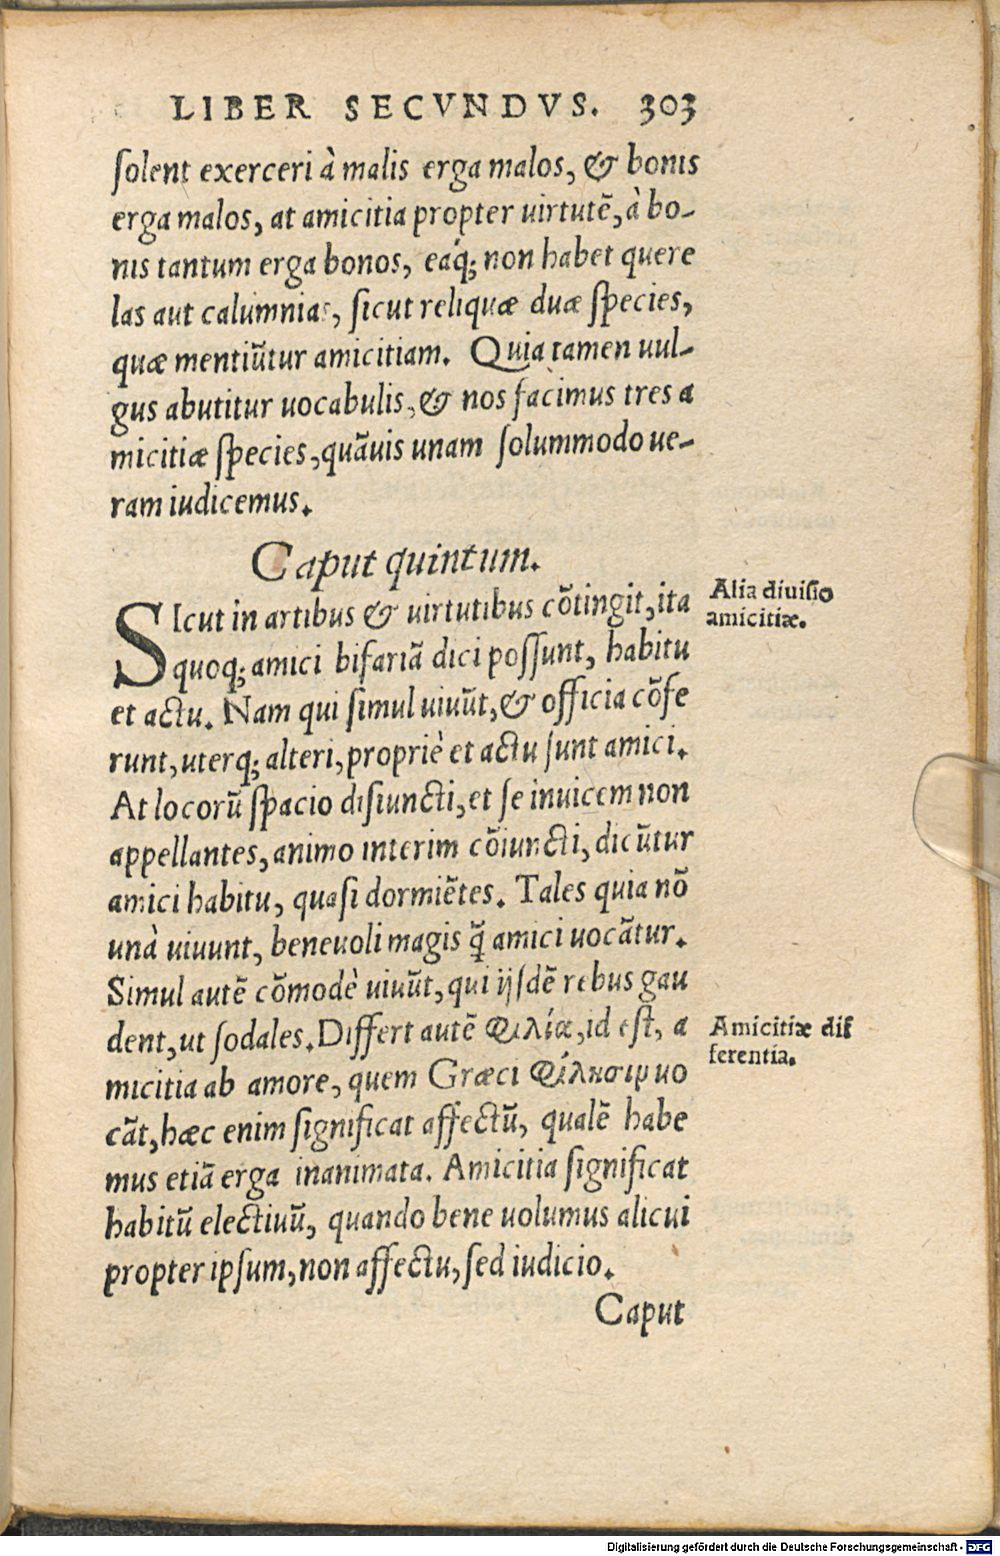 LIBER SECVNDVS. 303
ſolent exerceri à malis erga malos, & bonis
erga malos, at amicitia propter uirtutẽ, à bo-
nis tantum erga bonos, eaq́; non habet quere
las aut calumnias, ſicut reliquæ duæ ſpecies,
quæ mentiũtur amicitiam. Quia tamen uul-
gus abutitur uocabulis, & nos facimus tres a
micitiæ ſpecies, quãuis unam ſolummodo ue-
ram iudicemus.
Caput quintum.
SIcut in artibus & uirtutibus cõtingit, ita
quoq; amici bifariã dici poſſunt, habitu
et actu. Nam qui ſimul uiuũt, & officia cõfe
runt, uterq; alteri, propriè et actu ſunt amici.
At locorũ ſpacio diſiuncti, et ſe inuicem non
appellantes, animo interim cõiuncti, dicũtur
amici habitu, quaſi dormiẽtes. Tales quia nõ
unà uiuunt, beneuoli magis q̃ amici uocãtur.
Simul autẽ cõmodè uiuũt, qui ijſdẽ rebus gau
dent, ut ſodales. Differt autẽ φιλία, id eſt, a
micitia ab amore, quem Græci φίλησιν uo
cãt, hæc enim ſignificat affectũ, qualẽ habe
mus etiã erga inanimata. Amicitia ſignificat
habitũ electiuũ, quando bene uolumus alicui
propter ipſum, non affectu, ſed iudicio.
Caput
Alia diuiſio
amicitiæ.
Amicitiæ dif
ferentia.
Digitalisierung gefördert durch die Deutsche Forschungsgemeinschaft - DFG